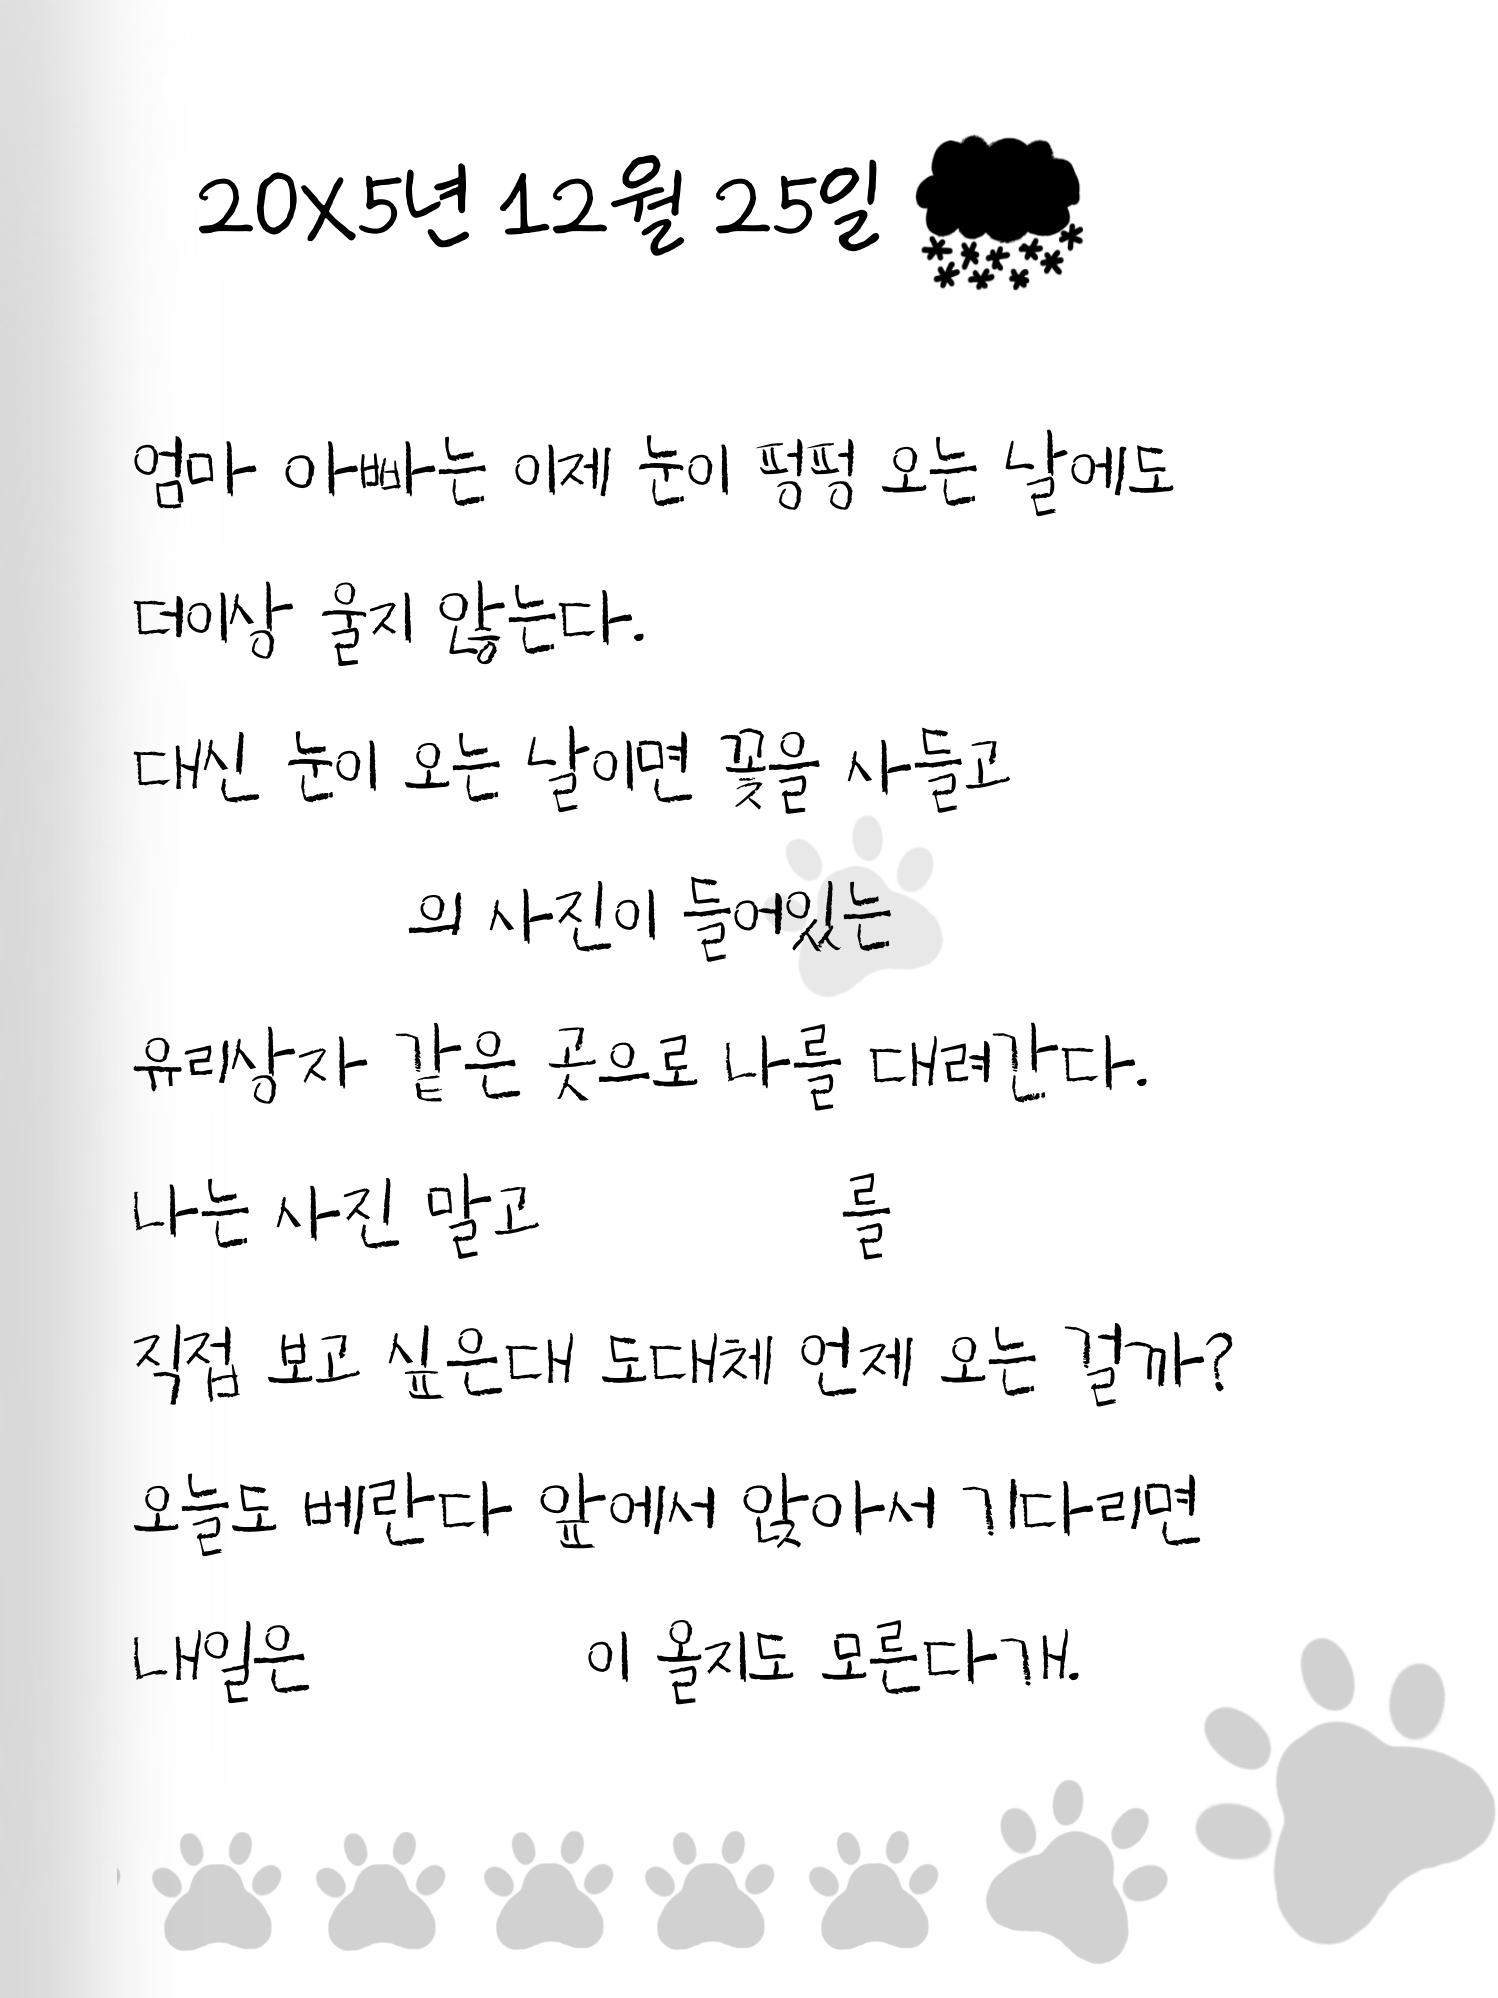 20X5년 12월 25일
엄마 아빠는 이제 눈이 펑펑 오는 날에도
더이상 울지 않는다.
대신 눈이 오는 날이면 꽃을 사들고
의 사진이 들어있는
유리상자 같은 곳으로 나를 대려간다.
나는 사진 말고 를
직접 보고 싶은대 도대체 언제 오는 걸까?
오늘도 베란다 앞에서 앉아서 기다리면
내일은 이 올지도 모른다개.